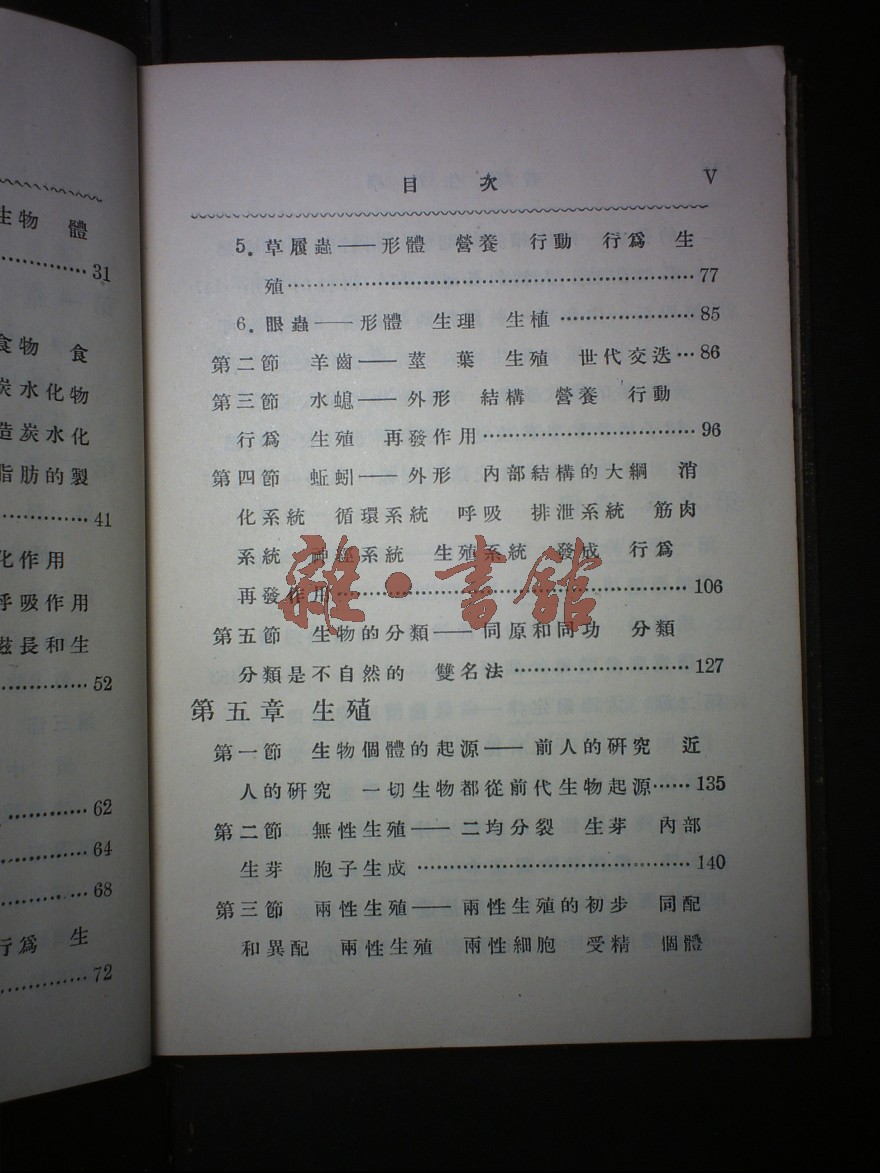 生物 體
31
食物 食
炭水化物
造炭水化
脂肪的製
41
化作用
呼吸作用
滋長和生
52
62
64
68
行爲 生
72
目 次 V
5. 草履蟲——形體 營養 行動 行爲 生
殖……77
6. 眼蟲——形體 生理 生植……85
第二節 羊齒——莖 葉 生殖 世代交迭…86
第三節 水螅——外形 結構 營養 行動
行爲 生殖 再發作用……96
第四節 蚯蚓——外形 內部結構的大綱 消
化系統 循環系統 呼吸 排泄系統 筋肉
系統 神經系統 生殖系統 發成 行爲
再發作用……106
第五節 生物的分類——同原和同功 分類
分類是不自然的 雙名法……127
第五章 生殖
第一節 生物個體的起源——前人的硏究 近
人的硏究 一切生物都從前代生物起源……135
第二節 無性生殖——二均分裂 生芽 內部
生芽 胞子生成……140
第三節 兩性生殖——兩性生殖的初步 同配
和異配 兩性生殖 兩性細胞 受精 個體
雜·書館